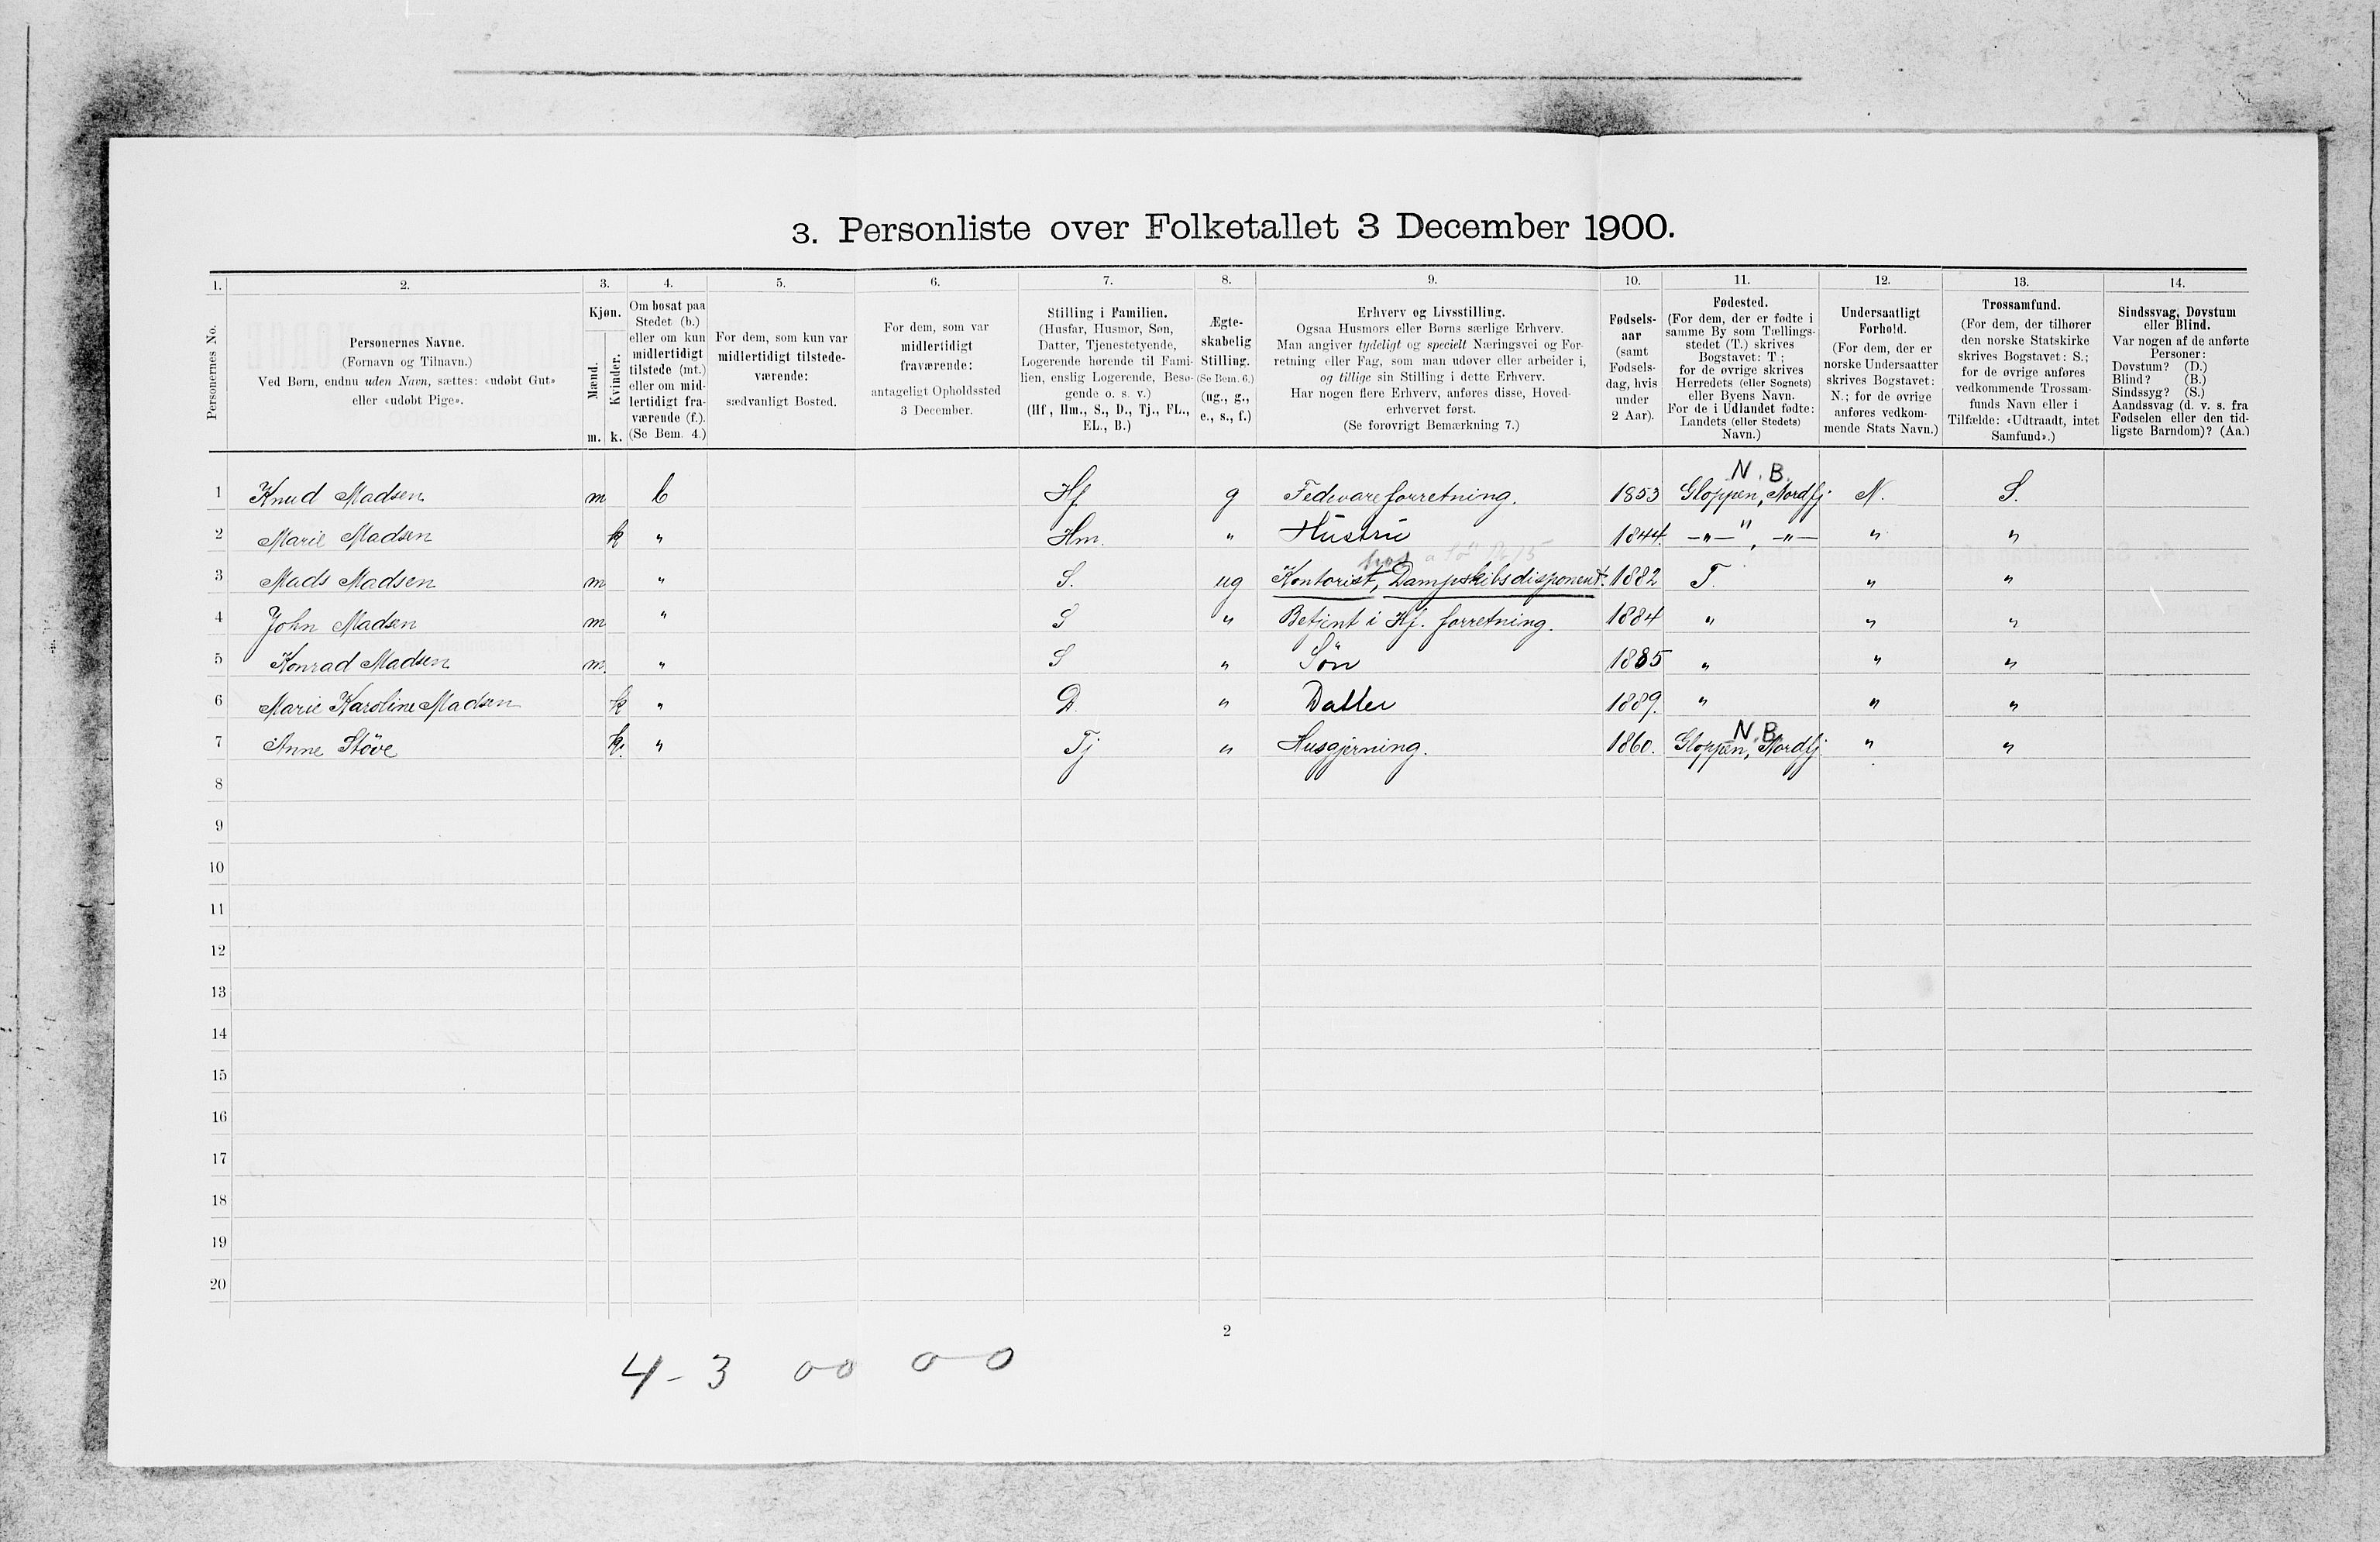 3. Personliste over Folketallet 3 December 1900.
1. 2. 3. 4. 5. 6. 7. 8. 9. 10. 11. 12. 13. 14.
Personernes No.
Personernes Navne.
(Fornavn og Tilnavn.)
Ved Børn, endnu uden Navn, sættes: «udøbt Gut»
eller «udøbt Pige».
Kjøn.
Mænd.
Kvinder.
m. k.
Om bosat paa
Stedet (b.)
eller om kun
midlertidigt
tilstede (mt.)
eller om mid-
lertidigt fra-
værende (f.).
(Se Bem. 4.)
For dem, som kun var
midlertidigt tilstede-
værende:
sædvanligt Bosted.
For dem, som var
midlertidigt
fraværende:
antageligt Opholdssted
3 December.
Stilling i Familien.
(Husfar, Husmor, Søn,
Datter, Tjenestetyende,
Logerende hørende til Fami-
lien, enslig Logerende, Besø-
gende o. s. v.)
(Hf., Hm., S., D., Tj., FL.,
EL., B.)
Ægte-
skabelig
Stilling.
(Se Bem. 6.)
(ug., g.,
e., s., f.)
Erhverv og Livsstilling.
Ogsaa Husmors eller Børns særlige Erhverv.
Man angiver tydeligt og specielt Næringsvei og For-
retning eller Fag, som man udøver eller arbeider i,
og tillige sin Stilling i dette Erhverv.
Har nogen flere Erhverv, anføres disse, Hoved-
erhvervet først.
(Se forøvrigt Bemærkning 7.)
Fødsels-
aar
(samt
Fødsels-
dag, hvis
under
2 Aar).
Fødested.
(For dem, der er fødte i
samme By som Tællings-
stedet (T.) skrives
Bogstavet: T;
for de øvrige skrives
Herredets (eller Sognets)
eller Byens Navn.
For de i Udlandet fødte:
Landets (eller Stedets)
Navn.)
Undersaatligt
Forhold.
(For dem, der er
norske Undersaatter
skrives Bogstavet:
N.; for de øvrige
anføres vedkom-
mende Stats Navn.)
Trossamfund.
(For dem, der tilhører
den norske Statskirke
skrives Bogstavet: S.;
for de øvrige anføres
vedkommende Trossam-
funds Navn eller i
Tilfælde: «Udtraadt, intet
Samfund».)
Sindssvag, Døvstum
eller Blind.
Var nogen af de anførte
Personer:
Døvstum? (D.)
Blind? (B.)
Sindssyg? (S.)
Aandssvag (d. v. s. fra
Fødselen eller den tid-
ligste Barndom)? (Aa.)
N. B.
1 Knud Madsen m b Hf g Fedevareforretning. 1853 Gloppen, Nordfj. N. S.
2 Marie Madsen k " Hm. " Hustru 1844. —"—, —"— " "
hos
3 Mads Madsen m " S. ug Kontorist, Dampskibsdisponent. 1882 T. " "
4 John Madsen m " S " Betjent i Hf. forretning. 1884 " " "
5 Konrad Madsen m. " S " Søn 1885 " " "
6 Marie Karoline Madsen k " D. " Datter 1889. " " "
N. B.
7 Anne Støve k. " Tj " Husgjerning. 1860. Gloppen, Nordfj. " "
8
9
10
11
12
13
14
15
16
17
18
19
20
2
4 - 3 00 0-0